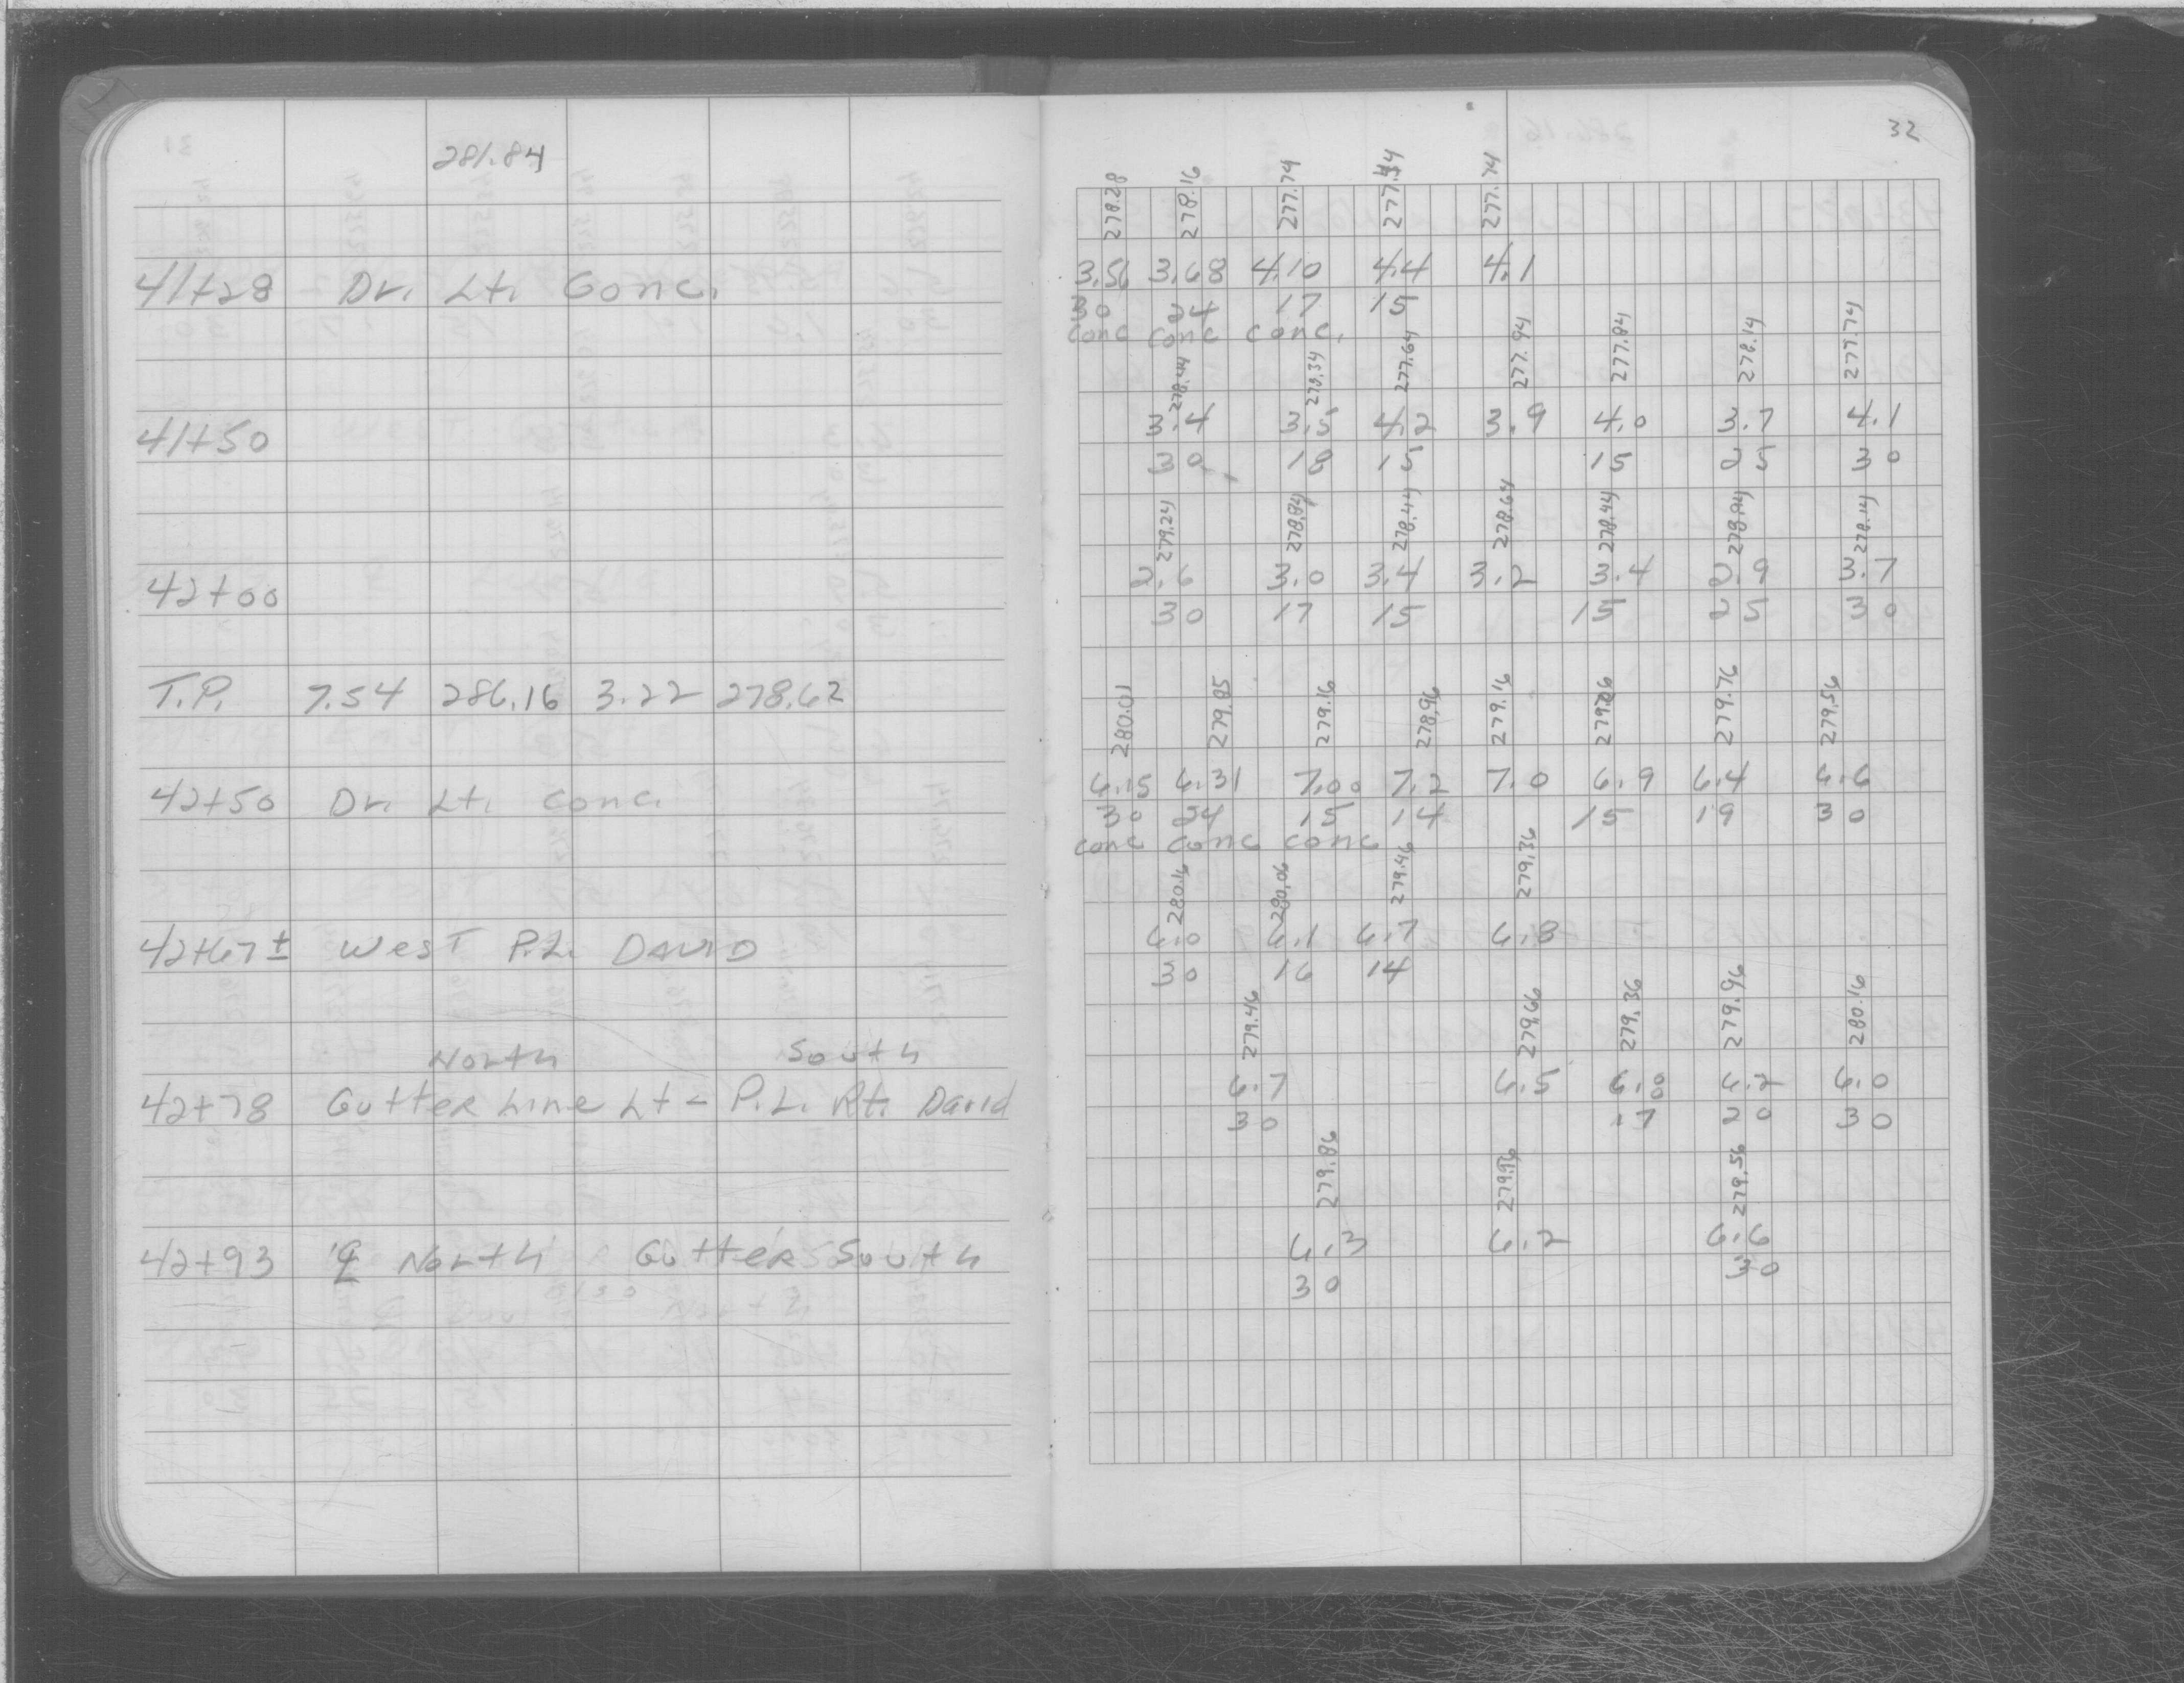 281.84
41+28 Dr. Lt. Conc.
41+50
42+00
T.P. 7.54 286.16 3.22 278.62
42+50 Dr. Lt. Conc.
42+67± West P.L. DAVID
North South
42+78 Gutter Line Lt - P.L. Rt. David
42+93 ℄ North Gutter South
32
278.28 278.16 277.74 277.44 277.74
3.56 3.68 4.10 4.4 4.1
30 24 17 15
conc conc conc.
278.44 278.34 277.64 277.94 277.84 278.14 277.74
3.4 3.5 4.2 3.9 4.0 3.7 4.1
30 18 15 15 25 30
279.24 278.84 278.44 278.64 278.44 278.94 278.14
2.6 3.0 3.4 3.2 3.4 2.9 3.7
30 17 15 15 25 30
280.01 279.85 279.16 278.96 279.16 279.26 279.76 279.56
6.15 6.31 7.00 7.2 7.0 6.9 6.4 6.6
30 24 15 14 15 19 30
conc conc conc
280.16 280.06 279.46 279.36
6.0 6.1 6.7 6.8
30 16 14
279.46 279.66 279.36 279.96 280.16
6.7 6.5 6.8 6.2 6.0
30 17 20 30
279.86 279.96 279.56
6.3 6.2 6.6
30 30